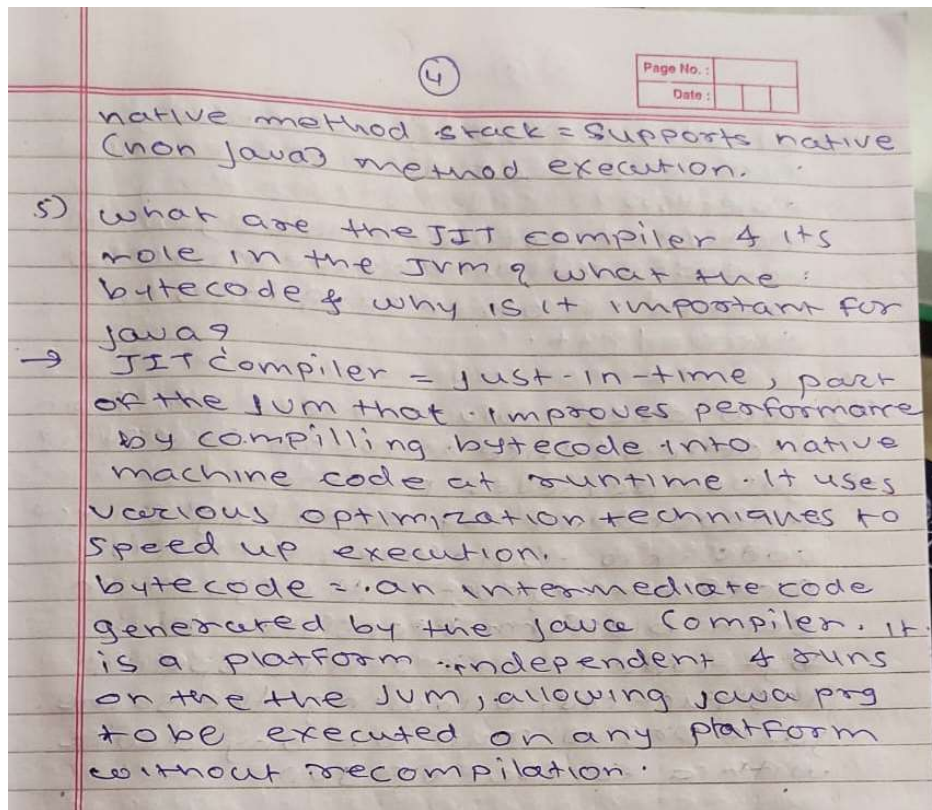 4
Page No. :
Date :
native method stack = supports native
(non java) method execution.
5) what are the JIT compiler & its
role in the JVM ? what the
bytecode & why is it important for
java ?
→ JIT compiler = just-in-time, part
of the JVM that improves performance
by compilling bytecode into native
machine code at runtime. It uses
various optimization techniques to
speed up execution.
bytecode = an intermediate code
generated by the java compiler. It
is a platform independent & runs
on the the JVM, allowing java prg
to be executed on any platform
without recompilation.